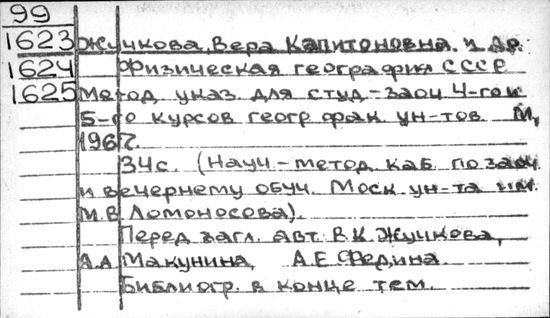 99
1623 Жучкова, Вера Капитоновна и др.
1624 Физическая география СССР
1625 Метод указ. для студ-заоч 4-го и
5-го курсов геогр фак. ун-тов М,
1967.
34с. (Науч-метод каб по заоч
и вечернему обуч. Моск ун-та им.
М.В. Ломоносова).
Перед загл. авт. В.К. Жучкова,
А.А. Макунина, А.Е. Федина
Библиогр. в конце тем.